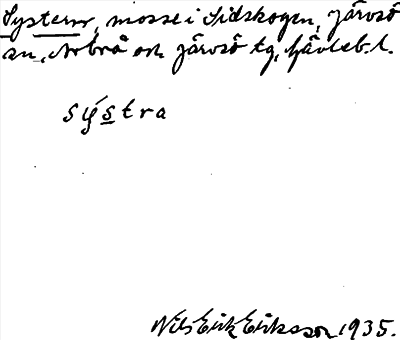 Systerns, mosse i Sidskogen, Järvsö
sn, Arbrå och Järvsö tg, Gävleb. l.
sýstra
Nils Erik Eriksson 1935.